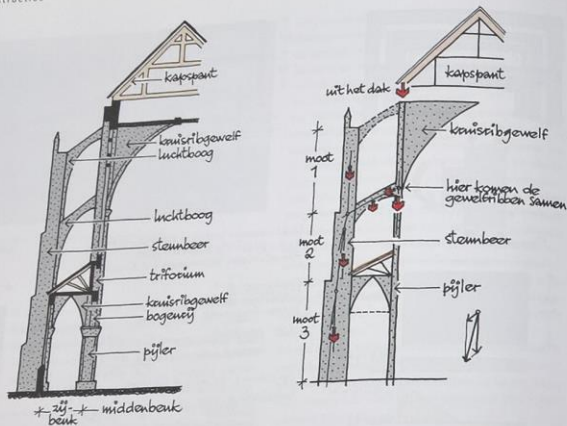 kapspant
kruisribgewelf
luchtboog
luchtboog
steunbeer
triforium
kruisribgewelf
bogenrij
pijler
zij-
beuk
middenbeuk
kapspant
uit het dak
kruisribgewelf
moot
1
hier komen de
gewelfribben samen
moot
2
steunbeer
pijler
moot
3